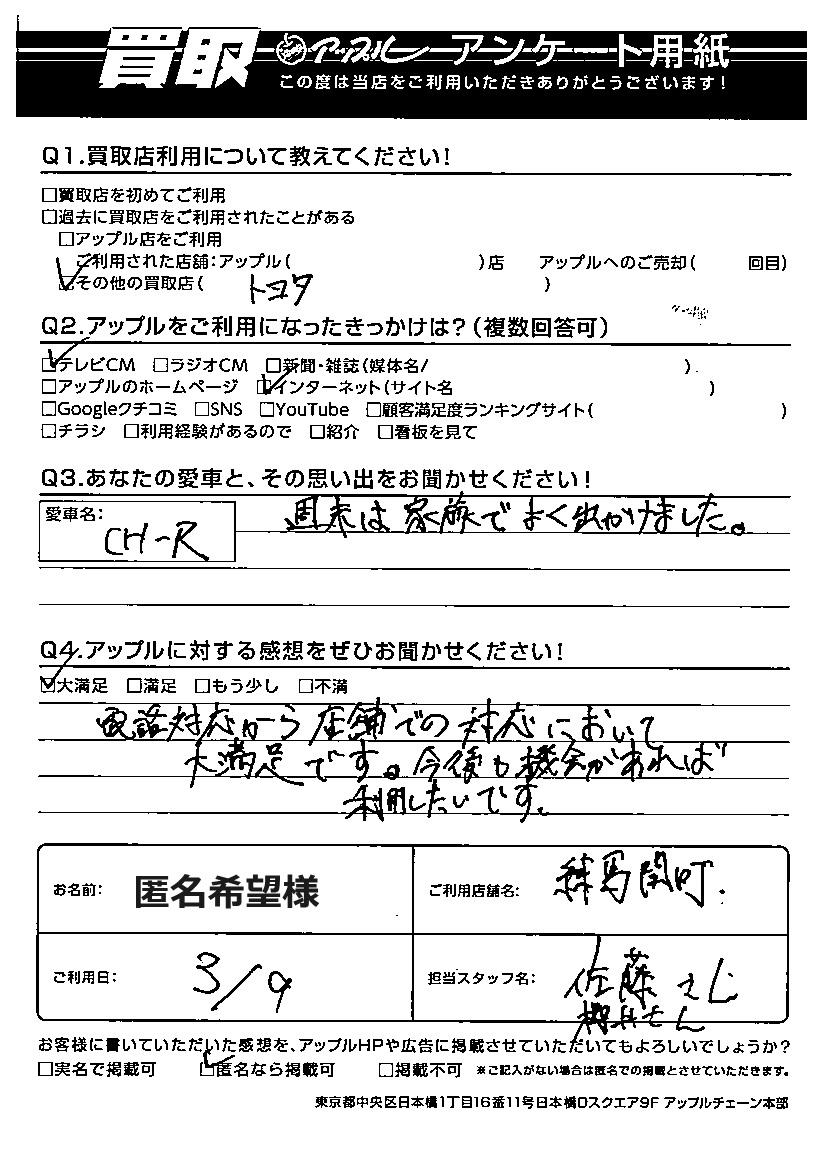 買取 アップル アンケート用紙
この度は当店をご利用いただきありがとうございます!
Q1.買取店利用について教えてください!
□買取店を初めてご利用
□過去に買取店をご利用されたことがある
□アップル店をご利用
ご利用された店舗:アップル( )店 アップルへのご売却( 回目)
☑その他の買取店( トヨタ )
Q2.アップルをご利用になったきっかけは?(複数回答可)
☑テレビCM □ラジオCM □新聞・雑誌(媒体名/ ).
□アップルのホームページ ☑インターネット(サイト名 )
□Googleクチコミ □SNS □YouTube □顧客満足度ランキングサイト( )
□チラシ □利用経験があるので □紹介 □看板を見て
Q3.あなたの愛車と、その思い出をお聞かせください!
愛車名: CH-R
週末は家族でよく出かけました。
Q4.アップルに対する感想をぜひお聞かせください!
☑大満足 □満足 □もう少し □不満
電話対応から店舗での対応において
大満足です。今後も機会があれば
利用したいです。
お名前: 匿名希望様
ご利用店舗名: 練馬関町.
ご利用日: 3/9
担当スタッフ名: 佐藤さん
さん
お客様に書いていただいた感想を、アップルHPや広告に掲載させていただいてもよろしいでしょうか?
□実名で掲載可 ☑匿名なら掲載可 □掲載不可 ※ご記入がない場合は匿名での掲載とさせていただきます。
東京都中央区日本橋1丁目16番11号日本橋Dスクエア9F アップルチェーン本部